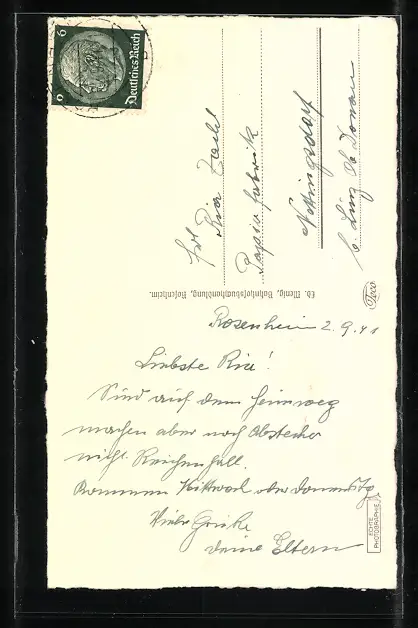 Rosenheim 2.9.41
Liebste Ria!
Sind auf dem Heimweg
machen aber noch Abstecher
nach Reichenhall.
Kommen Mittwoch oder Donnerstg
Viele Grüße
deine Eltern
Frl.
Ria
Papierfabrik
Nettingsdorf
b. Linz Ob. Donau
Deutsches Reich
6
6
Ed. Menig, Bahnhofsbuchhandlung, Rosenheim.
ECHTE
PHOTOGRAPHIE